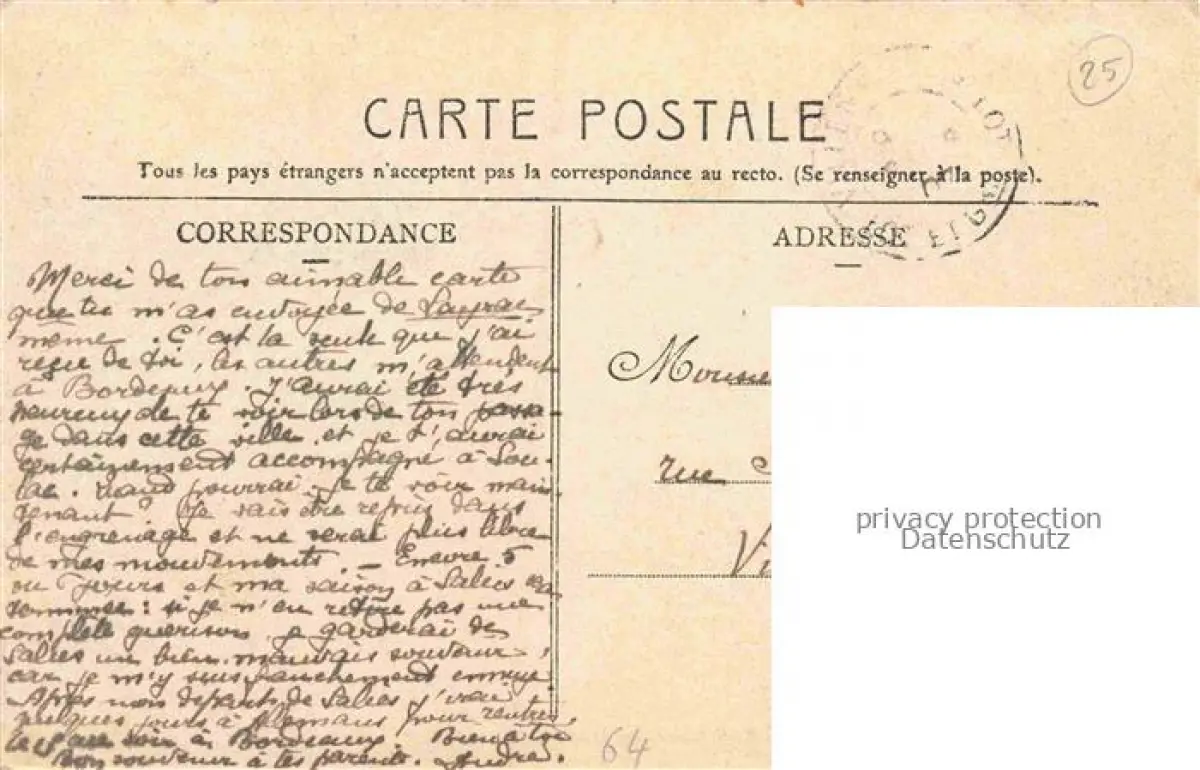 25
CARTE POSTALE
Tous les pays étrangers n'acceptent pas la correspondance au recto. (Se renseigner à la poste).
CORRESPONDANCE
ADRESSE
Merci de ton aimable carte
que tu m'as envoyée de Layrac
même. C'est la seule que j'ai
reçue de toi, les autres m'attendent
à Bordeaux. J'aurai été très
heureux de te voir lors de ton passa-
ge dans cette ville et je t'aurai
certainement accompagné à Sou-
lac. Quand pourrai-je te voir main
tenant? Je vais être repris dans
l'engrenage et ne serai plus libre
de mes mouvements. - Encore 5
ou 7 jours et ma saison à Salies
: si je n'en retire pas une
complète guérison je garderai de
Salies un bien mauvais souvenir,
car je m'y suis franchement ennuyé
Après mon départ de Salies j'irai
quelques jours à pour rentrer
le au soir à Bordeaux. Bien à toi
Bon souvenir à tes parents. André.
rue
Vi
64
privacy protection
Datenschutz